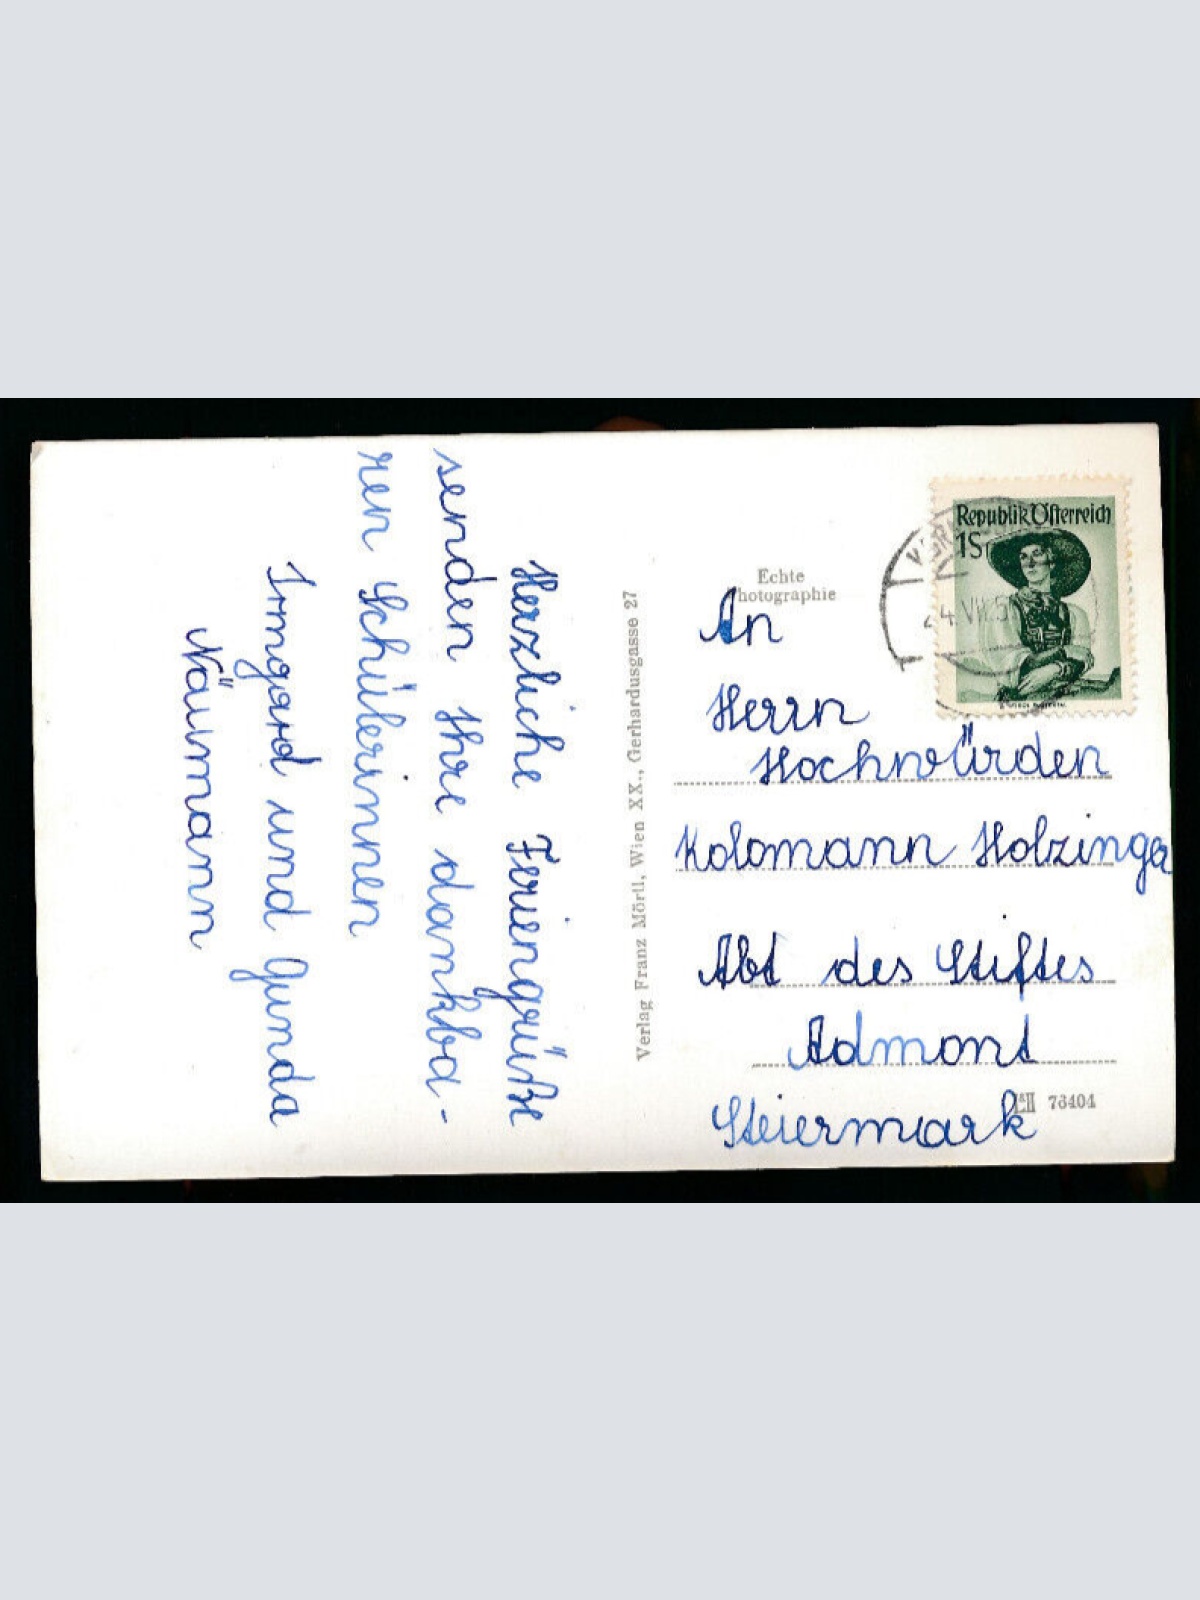 Herzliche Feriengrüße
senden Ihre dankba-
ren Schülerinnen
Irmgard und Gunda
Naumann
Verlag Franz Mörtl, Wien XX., Gerhardusgasse 27
Echte
Photographie
Republik Österreich
1S
4.VII.5
An
Herrn
Hochwürden
Kolomann Holzinger
Abt des Stiftes
Admont
Steiermark
76404